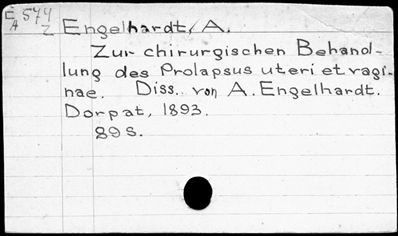 E, 544 Engelhardt, A.
A Z
Zur chirurgischen Behand-
lung des Prolapsus uteri et vagi-
nae. Diss. von A. Engelhardt.
Dorpat, 1893.
89 S.